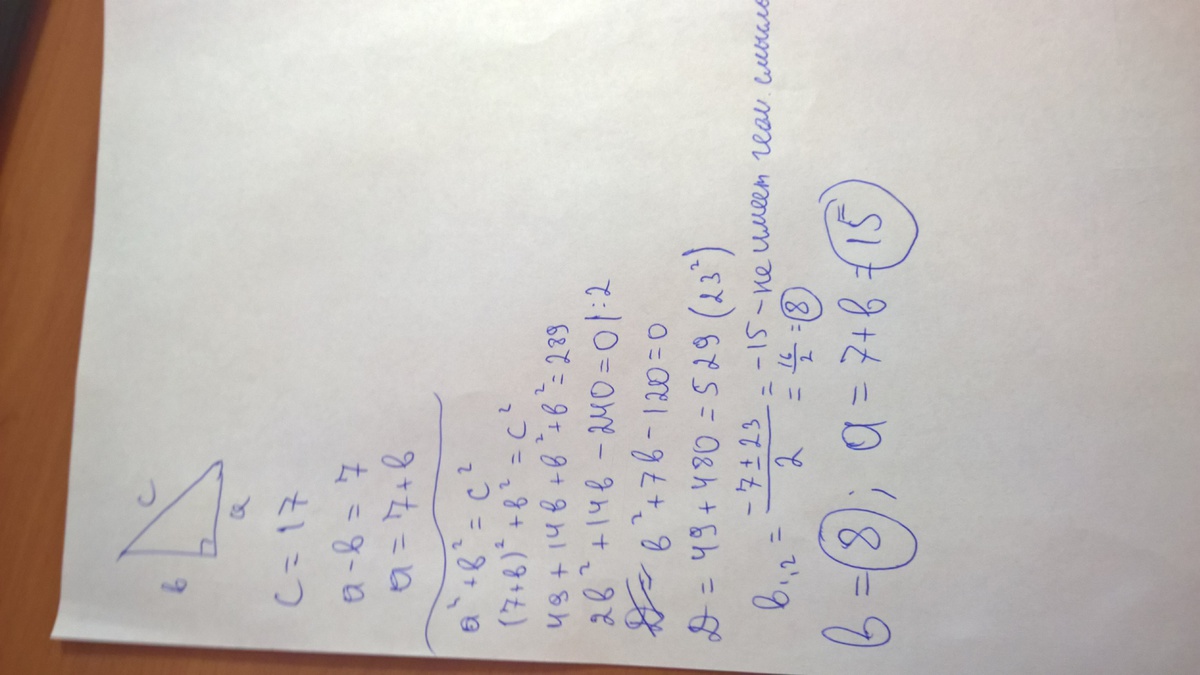 c
в
a
c = 17
a - в = 7
a = 7 + в
a² + в² = c²
(7+в)² + в² = c²
49 + 14в + в² + в² = 289
2в² + 14в - 240 = 0 |:2
в² + 7в - 120 = 0
D = 49 + 480 = 529 (23²)
в₁,₂ = (-7 ± 23)/2 = -15 - не имеет геом. смысл
= 16/2 = 8
в = 8; a = 7 + в = 15